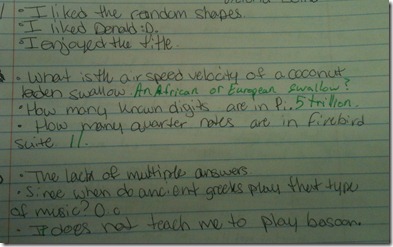 • I liked the random shapes.
• I liked Donald :D.
• I enjoyed the title.
• What is th air speed velocity of a coconut
laden swallow. An African or European swallow?
• How many known digits are in Pi.. 5 trillion.
• How many quarter notes are in firebird
suite 11.
• The lack of multiple answers.
• Since when do ancient greeks play that type
of music? O.o
• It does not teach me to play basoon.